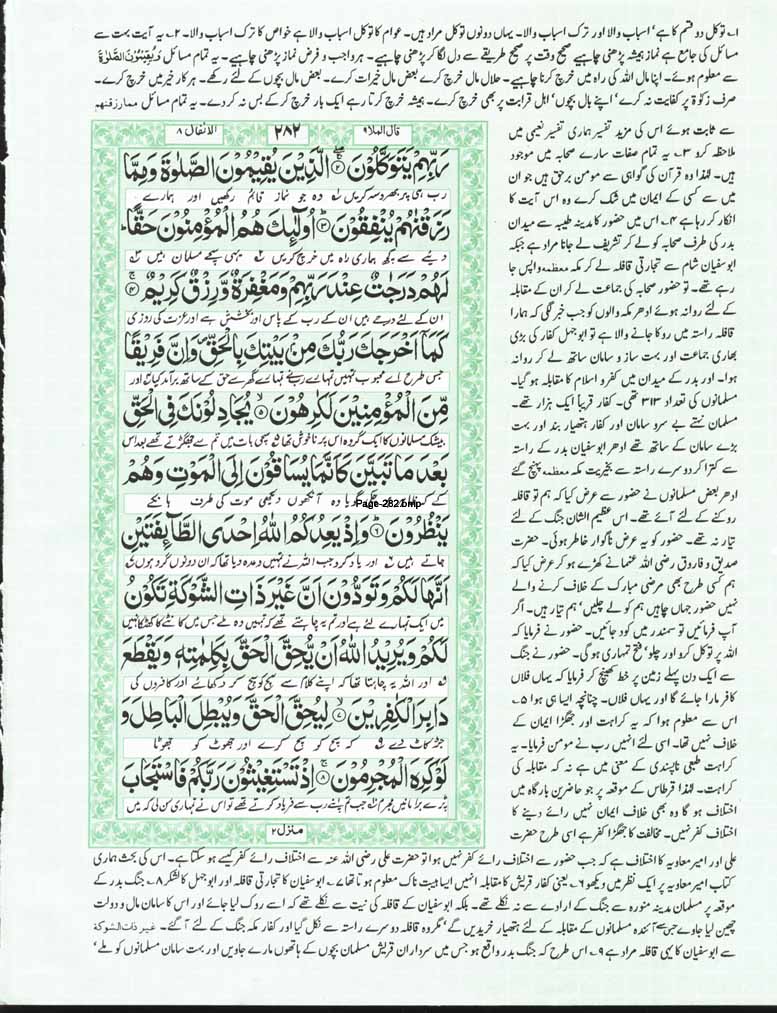 ۱۔ توکل دو قسم کا ہے' اسباب والا اور ترک اسباب والا۔ یہاں دونوں توکل مراد ہیں۔ عوام کا توکل اسباب والا ہے خواص کا ترک اسباب والا۔ ۲۔ یہ آیت بہت سے
مسائل کی جامع ہے نماز ہمیشہ پڑھنی چاہیے صحیح وقت پر صحیح طریقے سے دل لگا کر پڑھنی چاہیے۔ ہر واجب و فرض نماز پڑھنی چاہیے۔ یہ تمام مسائل وَيُقِيْمُوْنَ الصَّلٰوةَ
سے معلوم ہوئے۔ اپنا مال اللہ کی راہ میں خرچ کرنا چاہیے۔ حلال مال خرچ کرے بعض مال خیرات کرے۔ بعض مال بچوں کے لئے رکھے۔ ہر کار خیر میں خرچ کرے۔
صرف زکوٰۃ پر کفایت نہ کرے' اپنے بال بچوں' اہل قرابت پر بھی خرچ کرے۔ ہمیشہ خرچ کرتا رہے ایک بار خرچ کر کے بس نہ کر دے۔ یہ تمام مسائل ممارزقنهم
الانفال ۸
۲۸۲
قال الملا ۹
رَبِّهِمْ يَتَوَكَّلُوْنَ ۝۲ الَّذِيْنَ يُقِيْمُوْنَ الصَّلٰوةَ وَمِمَّا
رب ہی پر بھروسہ کریں وہ جو نماز قائم رکھیں اور ہمارے
رَزَقْنٰهُمْ يُنْفِقُوْنَ ۝۳ اُولٰٓئِكَ هُمُ الْمُؤْمِنُوْنَ حَقًّا
دیئے سے کچھ ہماری راہ میں خرچ کریں یہی سچے مسلمان ہیں
لَهُمْ دَرَجٰتٌ عِنْدَ رَبِّهِمْ وَمَغْفِرَةٌ وَّرِزْقٌ كَرِيْمٌ ۝۴
ان کے لئے درجے ہیں ان کے رب کے پاس اور بخشش ہے اور عزت کی روزی
كَمَآ اَخْرَجَكَ رَبُّكَ مِنْۢ بَيْتِكَ بِالْحَقِّ وَاِنَّ فَرِيْقًا
جس طرح اے محبوب تمہیں تمہارے رب نے تمہارے گھر سے حق کے ساتھ برآمد کیا اور
مِّنَ الْمُؤْمِنِيْنَ لَكٰرِهُوْنَ ۝۵ يُجَادِلُوْنَكَ فِى الْحَقِّ
بیشک مسلمانوں کا ایک گروہ اس پر ناخوش تھا سچی بات میں تم سے جھگڑتے تھے بعد اس
بَعْدَ مَا تَبَيَّنَ كَاَنَّمَا يُسَاقُوْنَ اِلَى الْمَوْتِ وَهُمْ
Page-282.bmp
يَنْظُرُوْنَ ۝۶ وَاِذْ يَعِدُكُمُ اللّٰهُ اِحْدَى الطَّآئِفَتَيْنِ
جاتے ہیں اور یاد کرو جب اللہ نے تمہیں وعدہ دیا تھا کہ ان دونوں گروہوں
اَنَّهَا لَكُمْ وَتَوَدُّوْنَ اَنَّ غَيْرَ ذَاتِ الشَّوْكَةِ تَكُوْنُ
میں ایک تمہارے لئے ہے اور تم یہ چاہتے تھے کہ تمہیں وہ ملے جس میں کانٹے کا کھٹکا نہیں
لَكُمْ وَيُرِيْدُ اللّٰهُ اَنْ يُّحِقَّ الْحَقَّ بِكَلِمٰتِهٖ وَيَقْطَعَ
اور اللہ یہ چاہتا تھا کہ اپنے کلام سے سچ کو سچ کر دکھائے اور کافروں کی
دَابِرَ الْكٰفِرِيْنَ ۝۷ لِيُحِقَّ الْحَقَّ وَيُبْطِلَ الْبَاطِلَ وَ
جڑ کاٹ دے کہ سچ کو سچ کرے اور جھوٹ کو جھوٹا
لَوْ كَرِهَ الْمُجْرِمُوْنَ ۝۸ اِذْ تَسْتَغِيْثُوْنَ رَبَّكُمْ فَاسْتَجَابَ
پڑے برا مانیں مجرم جب تم اپنے رب سے فریاد کرتے تھے تو اس نے تمہاری سن لی کہ میں
منزل ۲
سے ثابت ہوئے اس کی مزید تفسیر ہماری تفسیر نعیمی میں
ملاحظہ کرو ۳۔ یہ تمام صفات سارے صحابہ میں موجود
ہیں۔ لہٰذا وہ قرآن کی گواہی سے مومن برحق ہیں جو ان
میں سے کسی کے ایمان میں شک کرے وہ اس آیت کا
انکار کر رہا ہے ۴۔ اس میں حضور کا مدینہ طیبہ سے میدان
بدر کی طرف صحابہ کو لے کر تشریف لے جانا مراد ہے جبکہ
ابوسفیان شام سے تجارتی قافلہ لے کر مکہ معظمہ واپس جا
رہے تھے۔ تو حضور صحابہ کی جماعت لے کر ان کے مقابلہ
کے لئے روانہ ہوئے ادھر مکہ والوں کو جب خبر لگی کہ ہمارا
قافلہ راستہ میں روکا جانے والا ہے تو ابوجہل کفار کی بڑی
بھاری جماعت اور بہت ساز و سامان ساتھ لے کر روانہ
ہوا۔ اور بدر کے میدان میں کفر و اسلام کا مقابلہ ہو گیا۔
مسلمانوں کی تعداد ۳۱۳ تھی۔ کفار قریباً ایک ہزار تھے۔
مسلمان نہتے بے سرو سامان اور کفار ہتھیار بند اور بہت
بڑے سامان کے ساتھ تھے ادھر ابوسفیان بدر کے راستہ
سے کترا کر دوسرے راستہ سے بخیریت مکہ معظمہ پہنچ گئے
ادھر بعض مسلمانوں نے حضور سے عرض کیا کہ ہم تو قافلہ
روکنے کے لئے آئے تھے۔ اس عظیم الشان جنگ کے لئے
تیار نہ تھے۔ حضور کو یہ عرض ناگوار خاطر ہوئی۔ حضرت
صدیق و فاروق رضی اللہ عنہما نے کھڑے ہو کر عرض کیا کہ
ہم کسی طرح بھی مرضی مبارک کے خلاف کرنے والے
نہیں حضور جہاں چاہیں ہم کو لے چلیں' ہم تیار ہیں۔ اگر
آپ فرمائیں تو سمندر میں کود جائیں۔ حضور نے فرمایا کہ
اللہ پر توکل کرو اور چلو' فتح تمہاری ہو گی۔ حضور نے جنگ
سے ایک دن پہلے زمین پر خط کھینچ کر فرمایا کہ یہاں فلاں
کافر مارا جائے گا اور یہاں فلاں۔ چنانچہ ایسا ہی ہوا ۵۔
اس سے معلوم ہوا کہ یہ کراہت اور جھگڑا ایمان کے
خلاف نہیں تھا۔ اسی لئے انہیں رب نے مومن فرمایا۔ یہ
کراہت طبعی ناپسندی کے معنی میں ہے نہ کہ مقابلہ کی
کراہت۔ لہٰذا قرطاس کے موقعہ پر جو حاضرین بارگاہ میں
اختلاف ہوا وہ بھی خلاف ایمان نہیں رائے دینے کا
اختلاف کفر نہیں۔ مخالفت کا جھگڑا کفر ہے اسی طرح حضرت
علی اور امیر معاویہ کا اختلاف ہے کہ جب حضور سے اختلاف رائے کفر نہیں ہوا تو حضرت علی رضی اللہ عنہ سے اختلاف رائے کفر کیسے ہو سکتا ہے۔ اس کی بحث ہماری
کتاب امیر معاویہ پر ایک نظر میں دیکھو ۶۔ یعنی کفار قریش کا مقابلہ انہیں ایسا ہیبت ناک معلوم ہوتا تھا ۷۔ ابوسفیان کا تجارتی قافلہ اور ابوجہل کا لشکر ۸۔ جنگ بدر کے
موقعہ پر مسلمان مدینہ منورہ سے جنگ کے ارادے سے نہ نکلے تھے۔ بلکہ ابوسفیان کے قافلہ کی نیت سے نکلے تھے کہ اسے روک لیا جائے اور اس کا سامان مال و دولت
چھین لیا جاوے جس سے آئندہ مسلمانوں کے مقابلہ کے لئے ہتھیار خریدیں گے' مگر وہ قافلہ دوسرے راستہ سے نکل گیا اور کفار مکہ جنگ کے لئے آ گئے۔ غیر ذات الشوکة
سے ابوسفیان کا یہی قافلہ مراد ہے ۹۔ اس طرح کہ جنگ بدر واقع ہو جس میں سرداران قریش مسلمان بچوں کے ہاتھوں مارے جاویں اور بہت سامان مسلمانوں کو ملے'